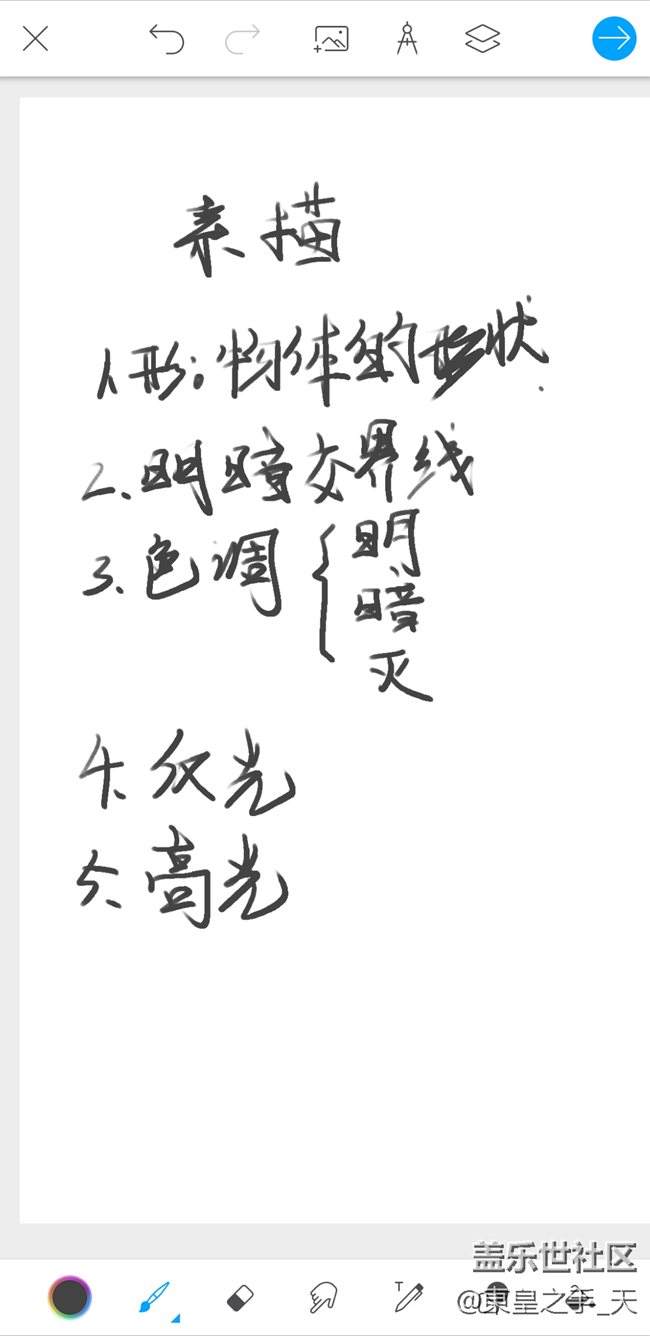 素描
1、形：物体的形状.
2、明暗交界线
3、色调{明
暗
灭
4、反光
5、高光
T
盖乐世社区
@東皇之手_天